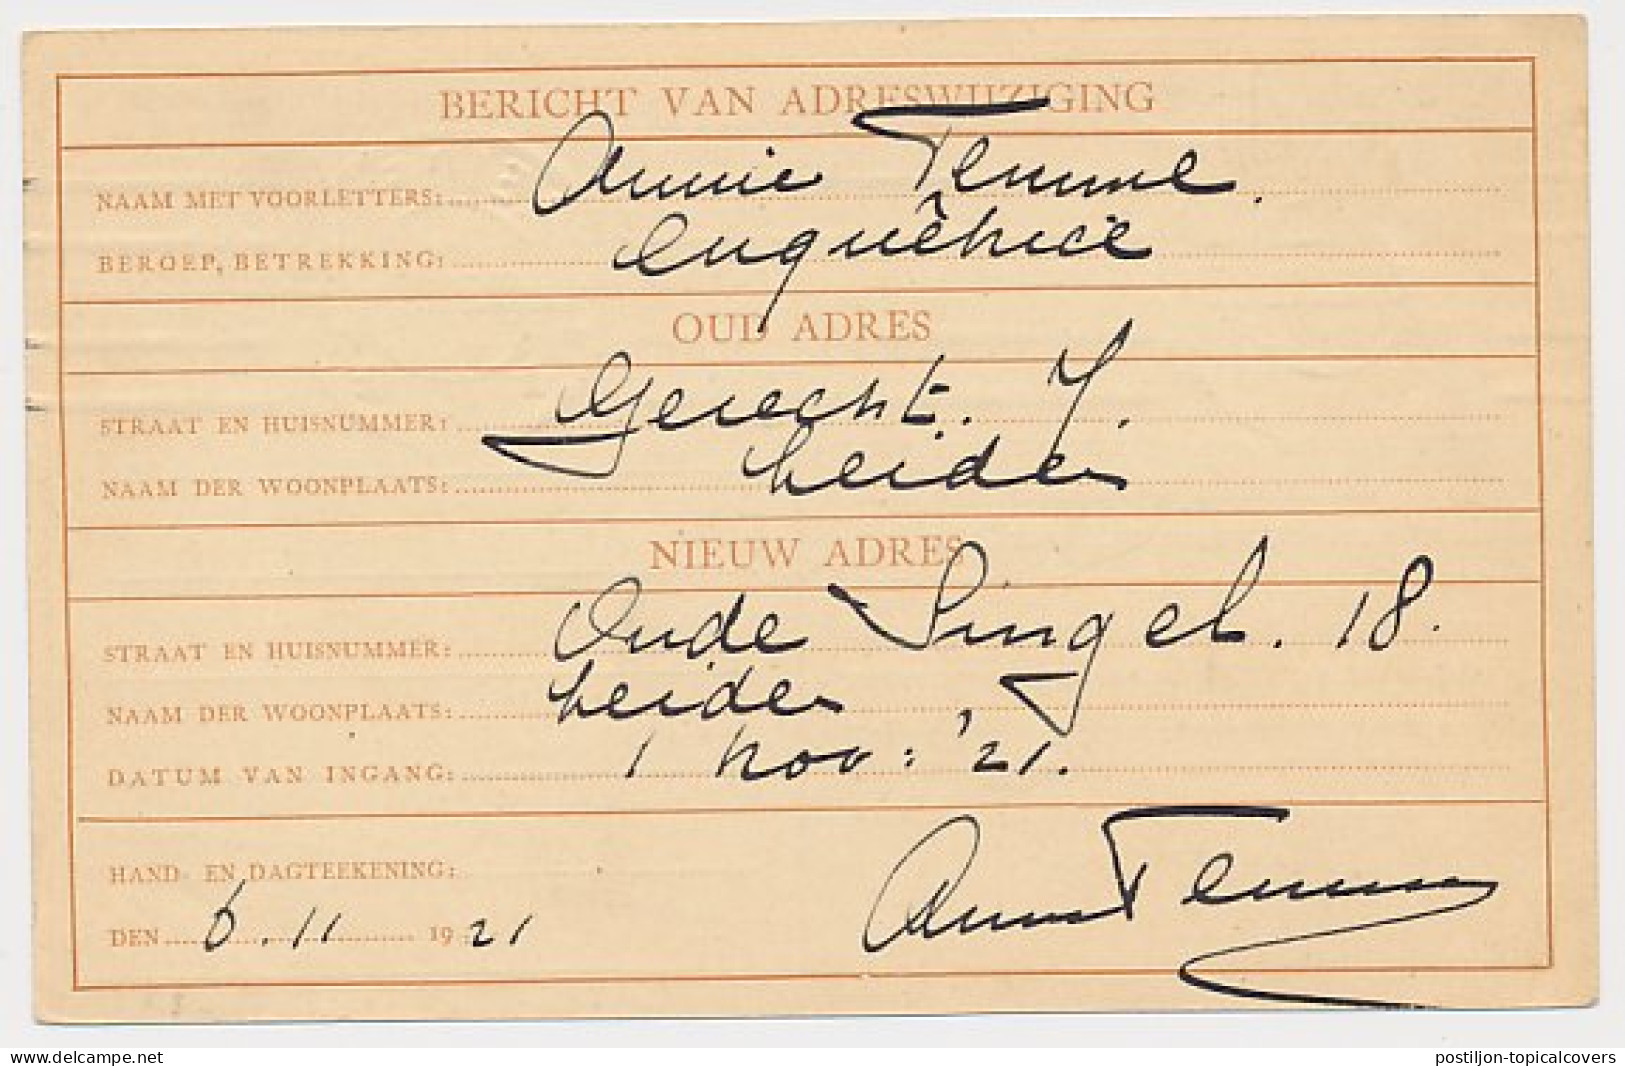 BERICHT VAN ADRESWIJZIGING
NAAM MET VOORLETTERS: Annie Temme.
BEROEP, BETREKKING: enquêtrice
OUD ADRES
STRAAT EN HUISNUMMER: Gerecht. 7.
NAAM DER WOONPLAATS: Leiden
NIEUW ADRES
STRAAT EN HUISNUMMER: Oude Singel. 18.
NAAM DER WOONPLAATS: Leiden,
DATUM VAN INGANG: 1 nov: '21.
HAND- EN DAGTEEKENING:
DEN 6.11 1921 Annie Temme
delcampe.net
postiljon-topicalcovers